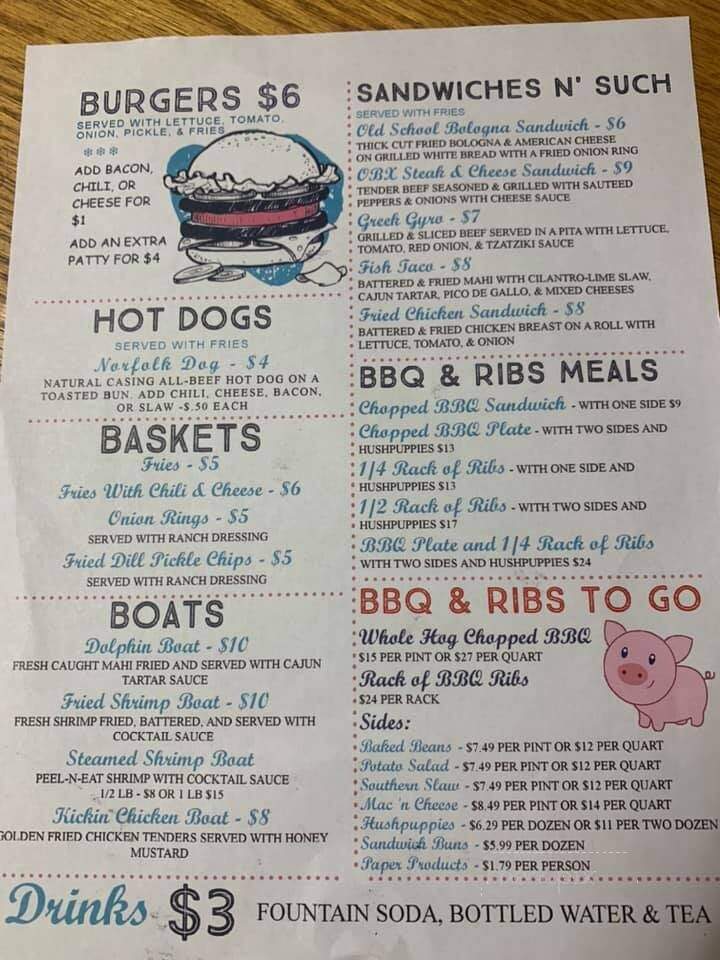 BURGERS $6
SERVED WITH LETTUCE, TOMATO,
ONION, PICKLE, & FRIES
***
ADD BACON,
CHILI, OR
CHEESE FOR
$1
ADD AN EXTRA
PATTY FOR $4
HOT DOGS
SERVED WITH FRIES
Norfolk Dog - $4
NATURAL CASING ALL-BEEF HOT DOG ON A
TOASTED BUN. ADD CHILI, CHEESE, BACON,
OR SLAW -$.50 EACH
BASKETS
Fries - $5
Fries With Chili & Cheese - $6
Onion Rings - $5
SERVED WITH RANCH DRESSING
Fried Dill Pickle Chips - $5
SERVED WITH RANCH DRESSING
BOATS
Dolphin Boat - $10
FRESH CAUGHT MAHI FRIED AND SERVED WITH CAJUN
TARTAR SAUCE
Fried Shrimp Boat - $10
FRESH SHRIMP FRIED, BATTERED, AND SERVED WITH
COCKTAIL SAUCE
Steamed Shrimp Boat
PEEL-N-EAT SHRIMP WITH COCKTAIL SAUCE
1/2 LB - $8 OR 1 LB $15
Kickin' Chicken Boat - $8
GOLDEN FRIED CHICKEN TENDERS SERVED WITH HONEY
MUSTARD
SANDWICHES N' SUCH
SERVED WITH FRIES
Old School Bologna Sandwich - $6
THICK CUT FRIED BOLOGNA & AMERICAN CHEESE
ON GRILLED WHITE BREAD WITH A FRIED ONION RING
OBX Steak & Cheese Sandwich - $9
TENDER BEEF SEASONED & GRILLED WITH SAUTEED
PEPPERS & ONIONS WITH CHEESE SAUCE
Greek Gyro - $7
GRILLED & SLICED BEEF SERVED IN A PITA WITH LETTUCE,
TOMATO, RED ONION, & TZATZIKI SAUCE
Fish Taco - $8
BATTERED & FRIED MAHI WITH CILANTRO-LIME SLAW,
CAJUN TARTAR, PICO DE GALLO, & MIXED CHEESES
Fried Chicken Sandwich - $8
BATTERED & FRIED CHICKEN BREAST ON A ROLL WITH
LETTUCE, TOMATO, & ONION
BBQ & RIBS MEALS
Chopped BBQ Sandwich - WITH ONE SIDE $9
Chopped BBQ Plate - WITH TWO SIDES AND
HUSHPUPPIES $13
1/4 Rack of Ribs - WITH ONE SIDE AND
HUSHPUPPIES $13
1/2 Rack of Ribs - WITH TWO SIDES AND
HUSHPUPPIES $17
BBQ Plate and 1/4 Rack of Ribs
WITH TWO SIDES AND HUSHPUPPIES $24
BBQ & RIBS TO GO
Whole Hog Chopped BBQ
$15 PER PINT OR $27 PER QUART
Rack of BBQ Ribs
$24 PER RACK
Sides:
Baked Beans - $7.49 PER PINT OR $12 PER QUART
Potato Salad - $7.49 PER PINT OR $12 PER QUART
Southern Slaw - $7.49 PER PINT OR $12 PER QUART
Mac 'n Cheese - $8.49 PER PINT OR $14 PER QUART
Hushpuppies - $6.29 PER DOZEN OR $11 PER TWO DOZEN
Sandwich Buns - $5.99 PER DOZEN
Paper Products - $1.79 PER PERSON
Drinks $3 FOUNTAIN SODA, BOTTLED WATER & TEA